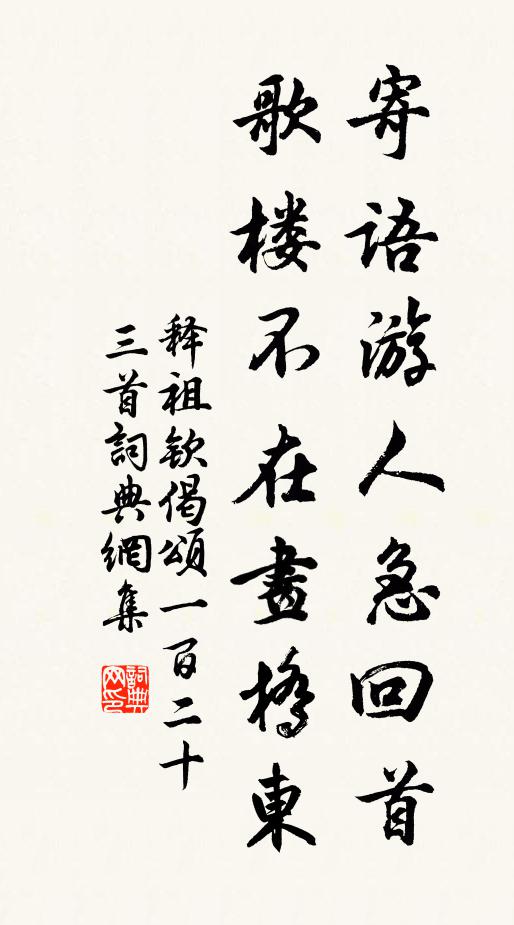 寄语游人急回首
歌楼不在畫橋東
释祖钦偈頌一百二十
三首詞典網集
詞典网印